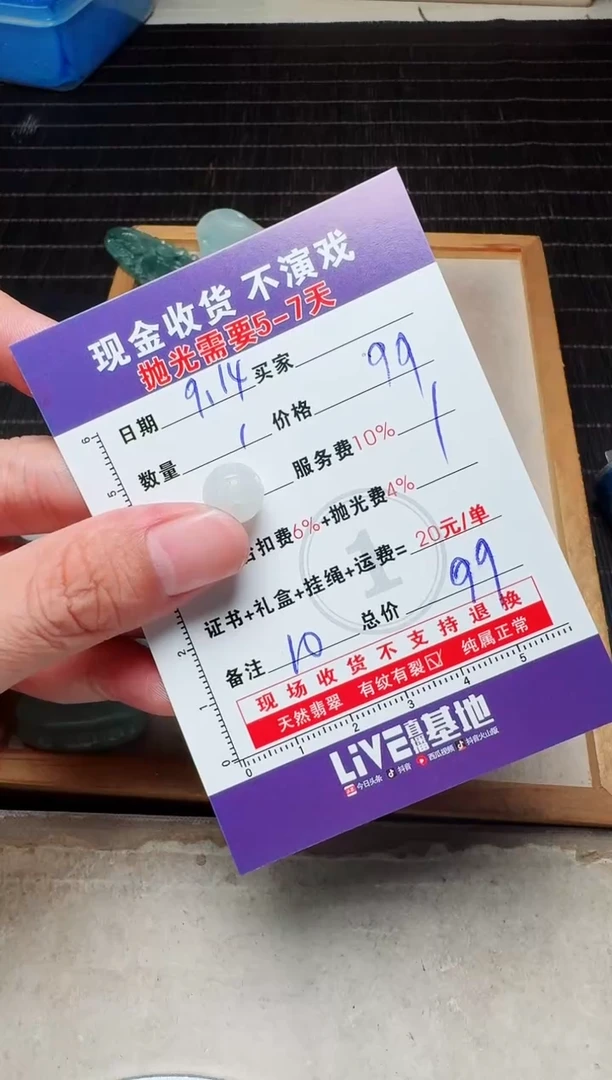 现金收货 不演戏
抛光需要5-7天
日期 9.14 买家
数量 1 价格 99
服务费10% 1
扣费6%+抛光费4%
证书+礼盒+挂绳+运费= 20元/单
备注 10 总价 99
现场收货不支持退换
天然翡翠 有纹有裂☑ 纯属正常
LIVE直播基地
今日头条 抖音 西瓜视频 抖音火山版
6
5
2
1
0
0 1 2 3 4 5
1